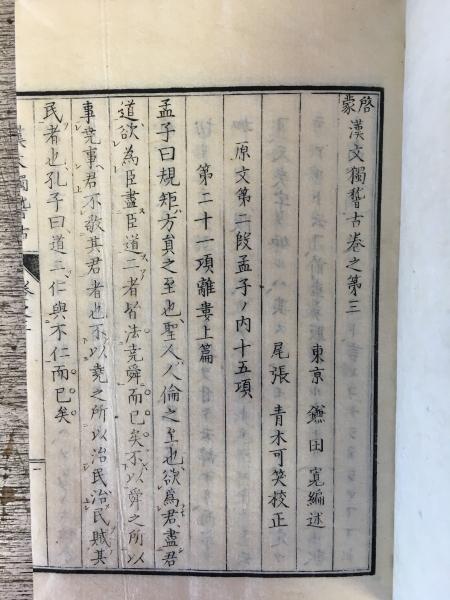 啓蒙漢文獨稽古卷之第三
東京 田寬編述
尾張 青木可笑校正
原文第二段孟子ノ内十五項
第二十一項離婁上篇
孟子曰規矩方員之至也聖人人倫之至也欲為君盡君
道欲為臣盡臣道二者皆法堯舜而已矣不以舜之所以
事堯事君不敬其君者也不以堯之所以治民治民賊其
民者也孔子曰道二仁與不仁而已矣